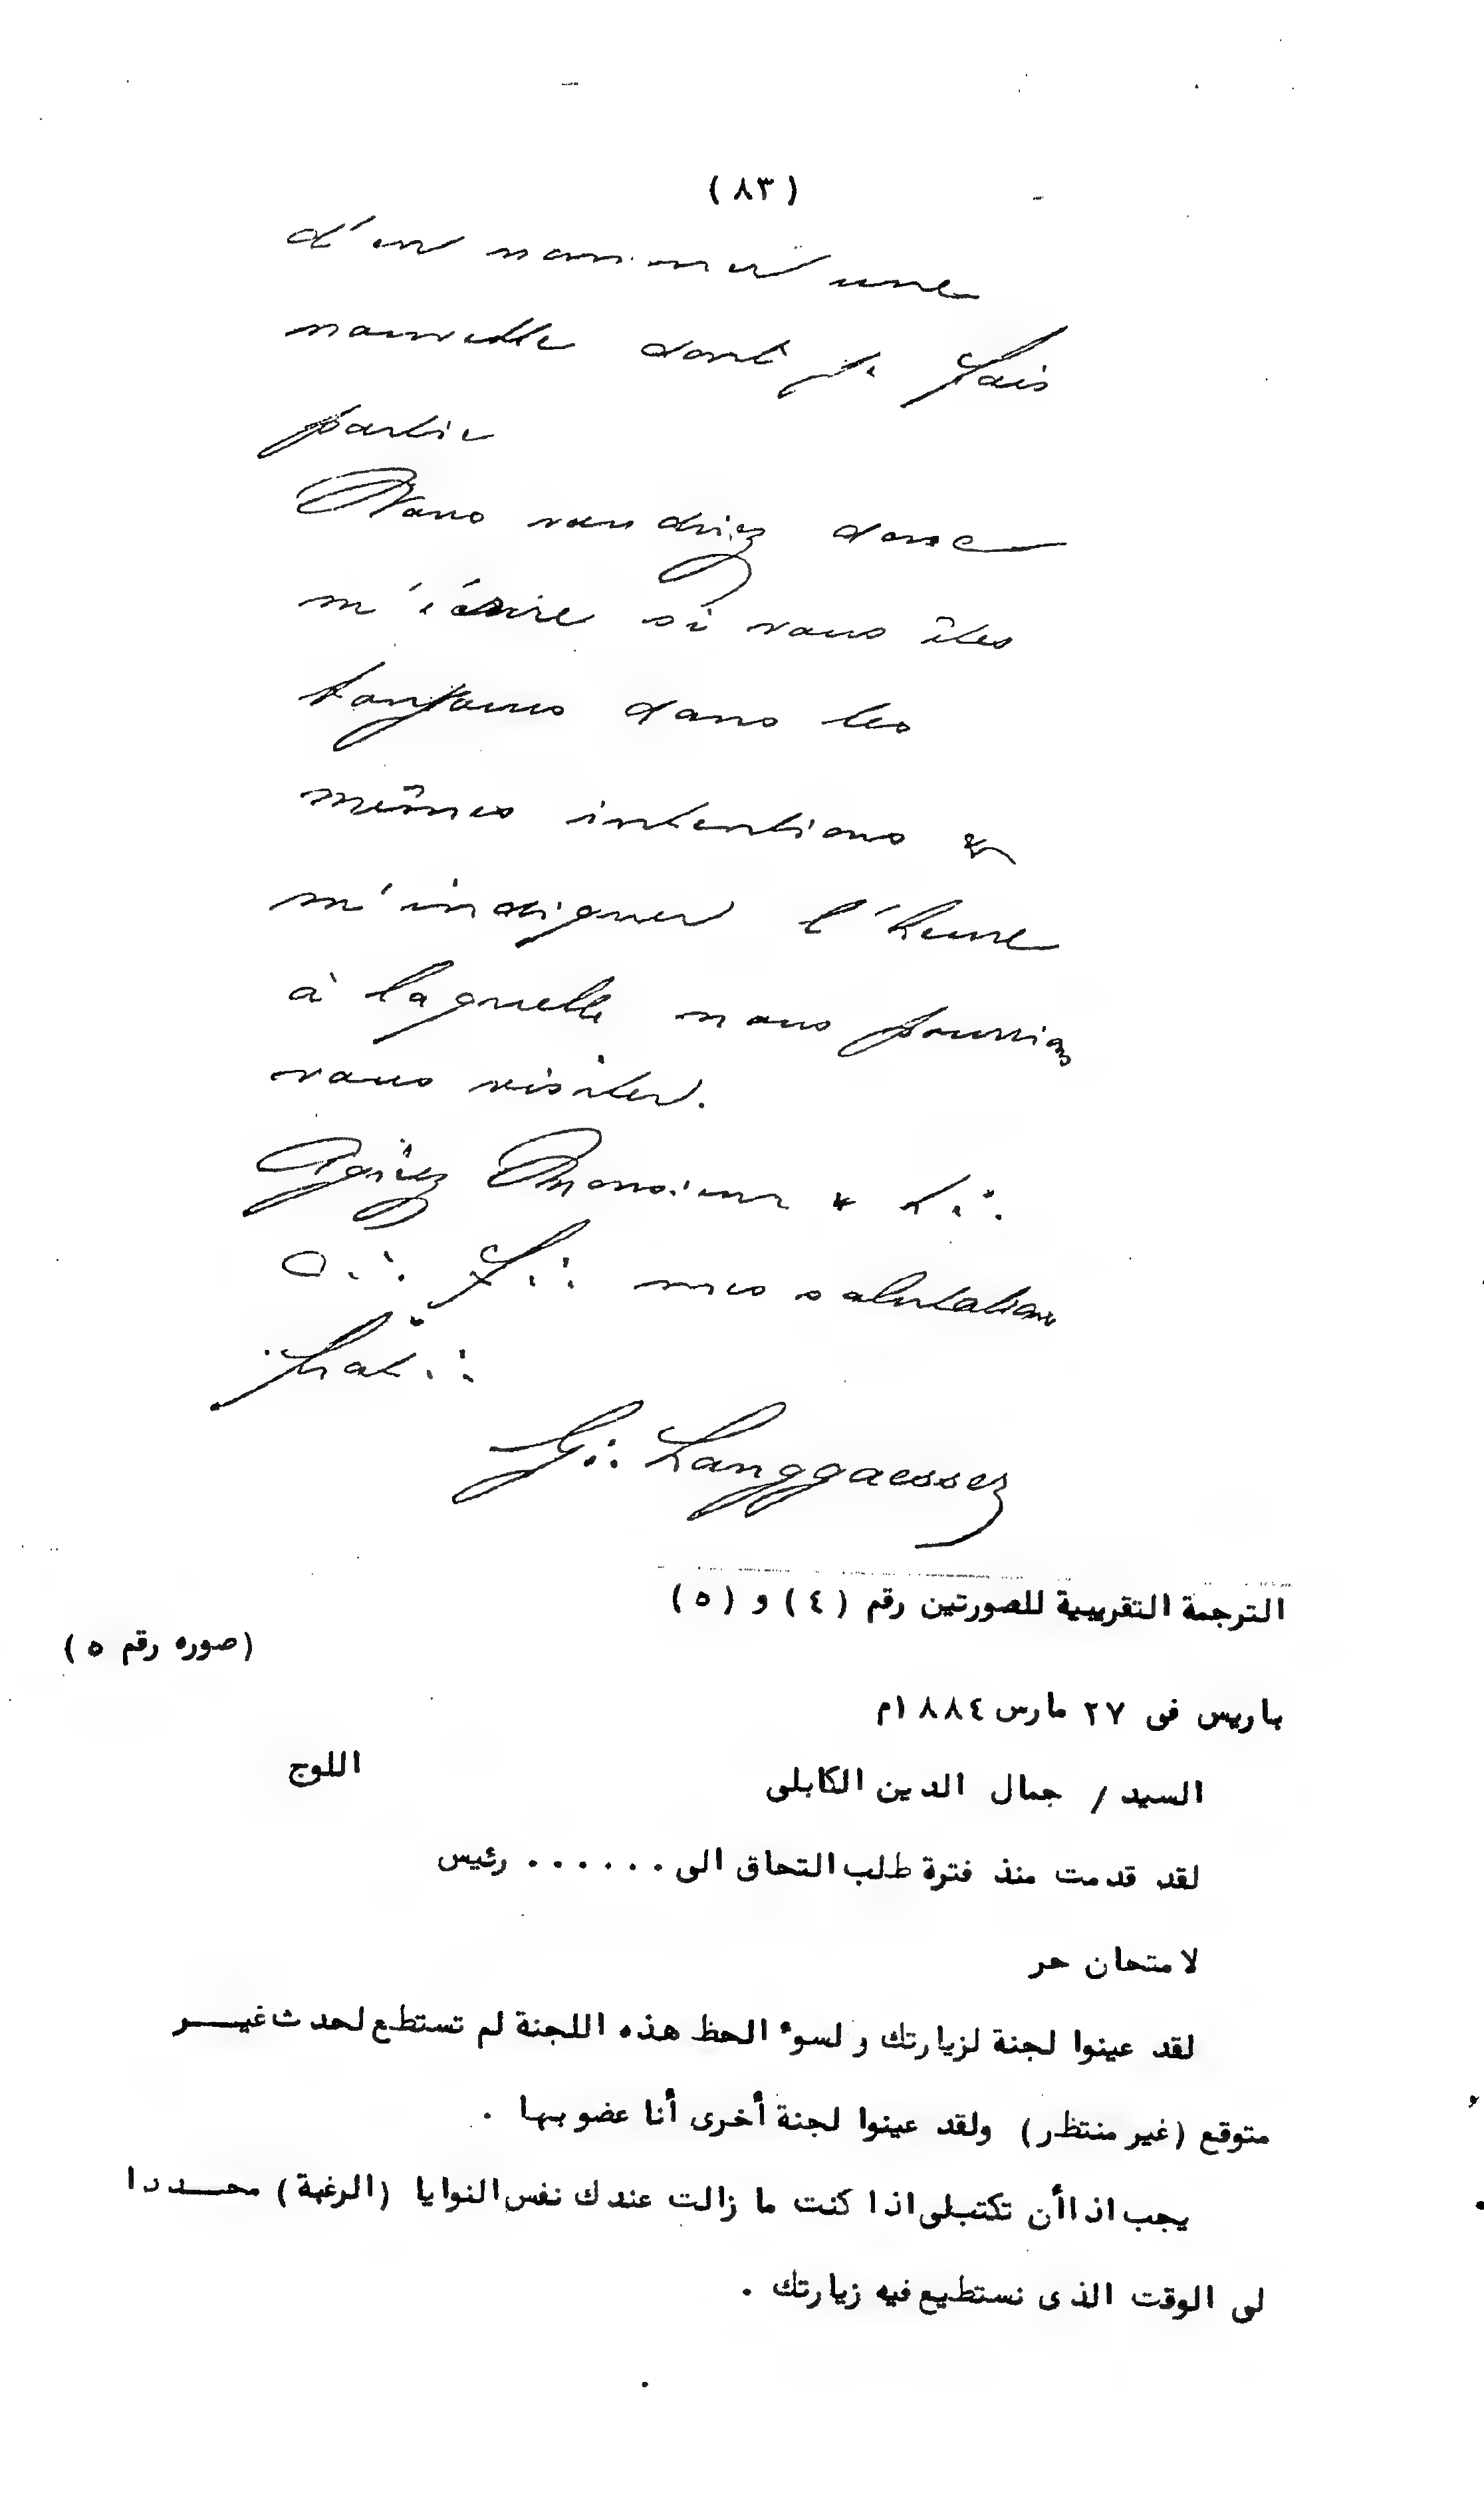 (٨٣)
d'en nommer une
nouvelle dont je fais
partie
Vous voudriez donc
m'écrire si vous êtes
toujours dans les
mêmes intentions &
m'indiquer l'heure
à laquelle nous pourrions
vous visiter.
Agréez Monsieur &
mes salutations
frat∴
G∴ Langgaesser
الترجمة التقريبية للصورتين رقم (٤) و (٥)
(صوره رقم ٥)
باريس فى ٢٧ مارس ١٨٨٤م
السيد / جمال الدين الكابلى
اللوج
لقد قدمت منذ فترة طلب التحاق الى ...... رئيس
لامتحان حر
لقد عينوا لجنة لزيارتك ولسوء الحظ هذه اللجنة لم تستطع لحدث غيـــر
متوقع (غير منتظر) ولقد عينوا لجنة أخرى أنا عضو بها .
يجب اذا أن تكتبلى اذا كنت ما زالت عندك نفس النوايا (الرغبة) محـــددا
لى الوقت الذى نستطيع فيه زيارتك .